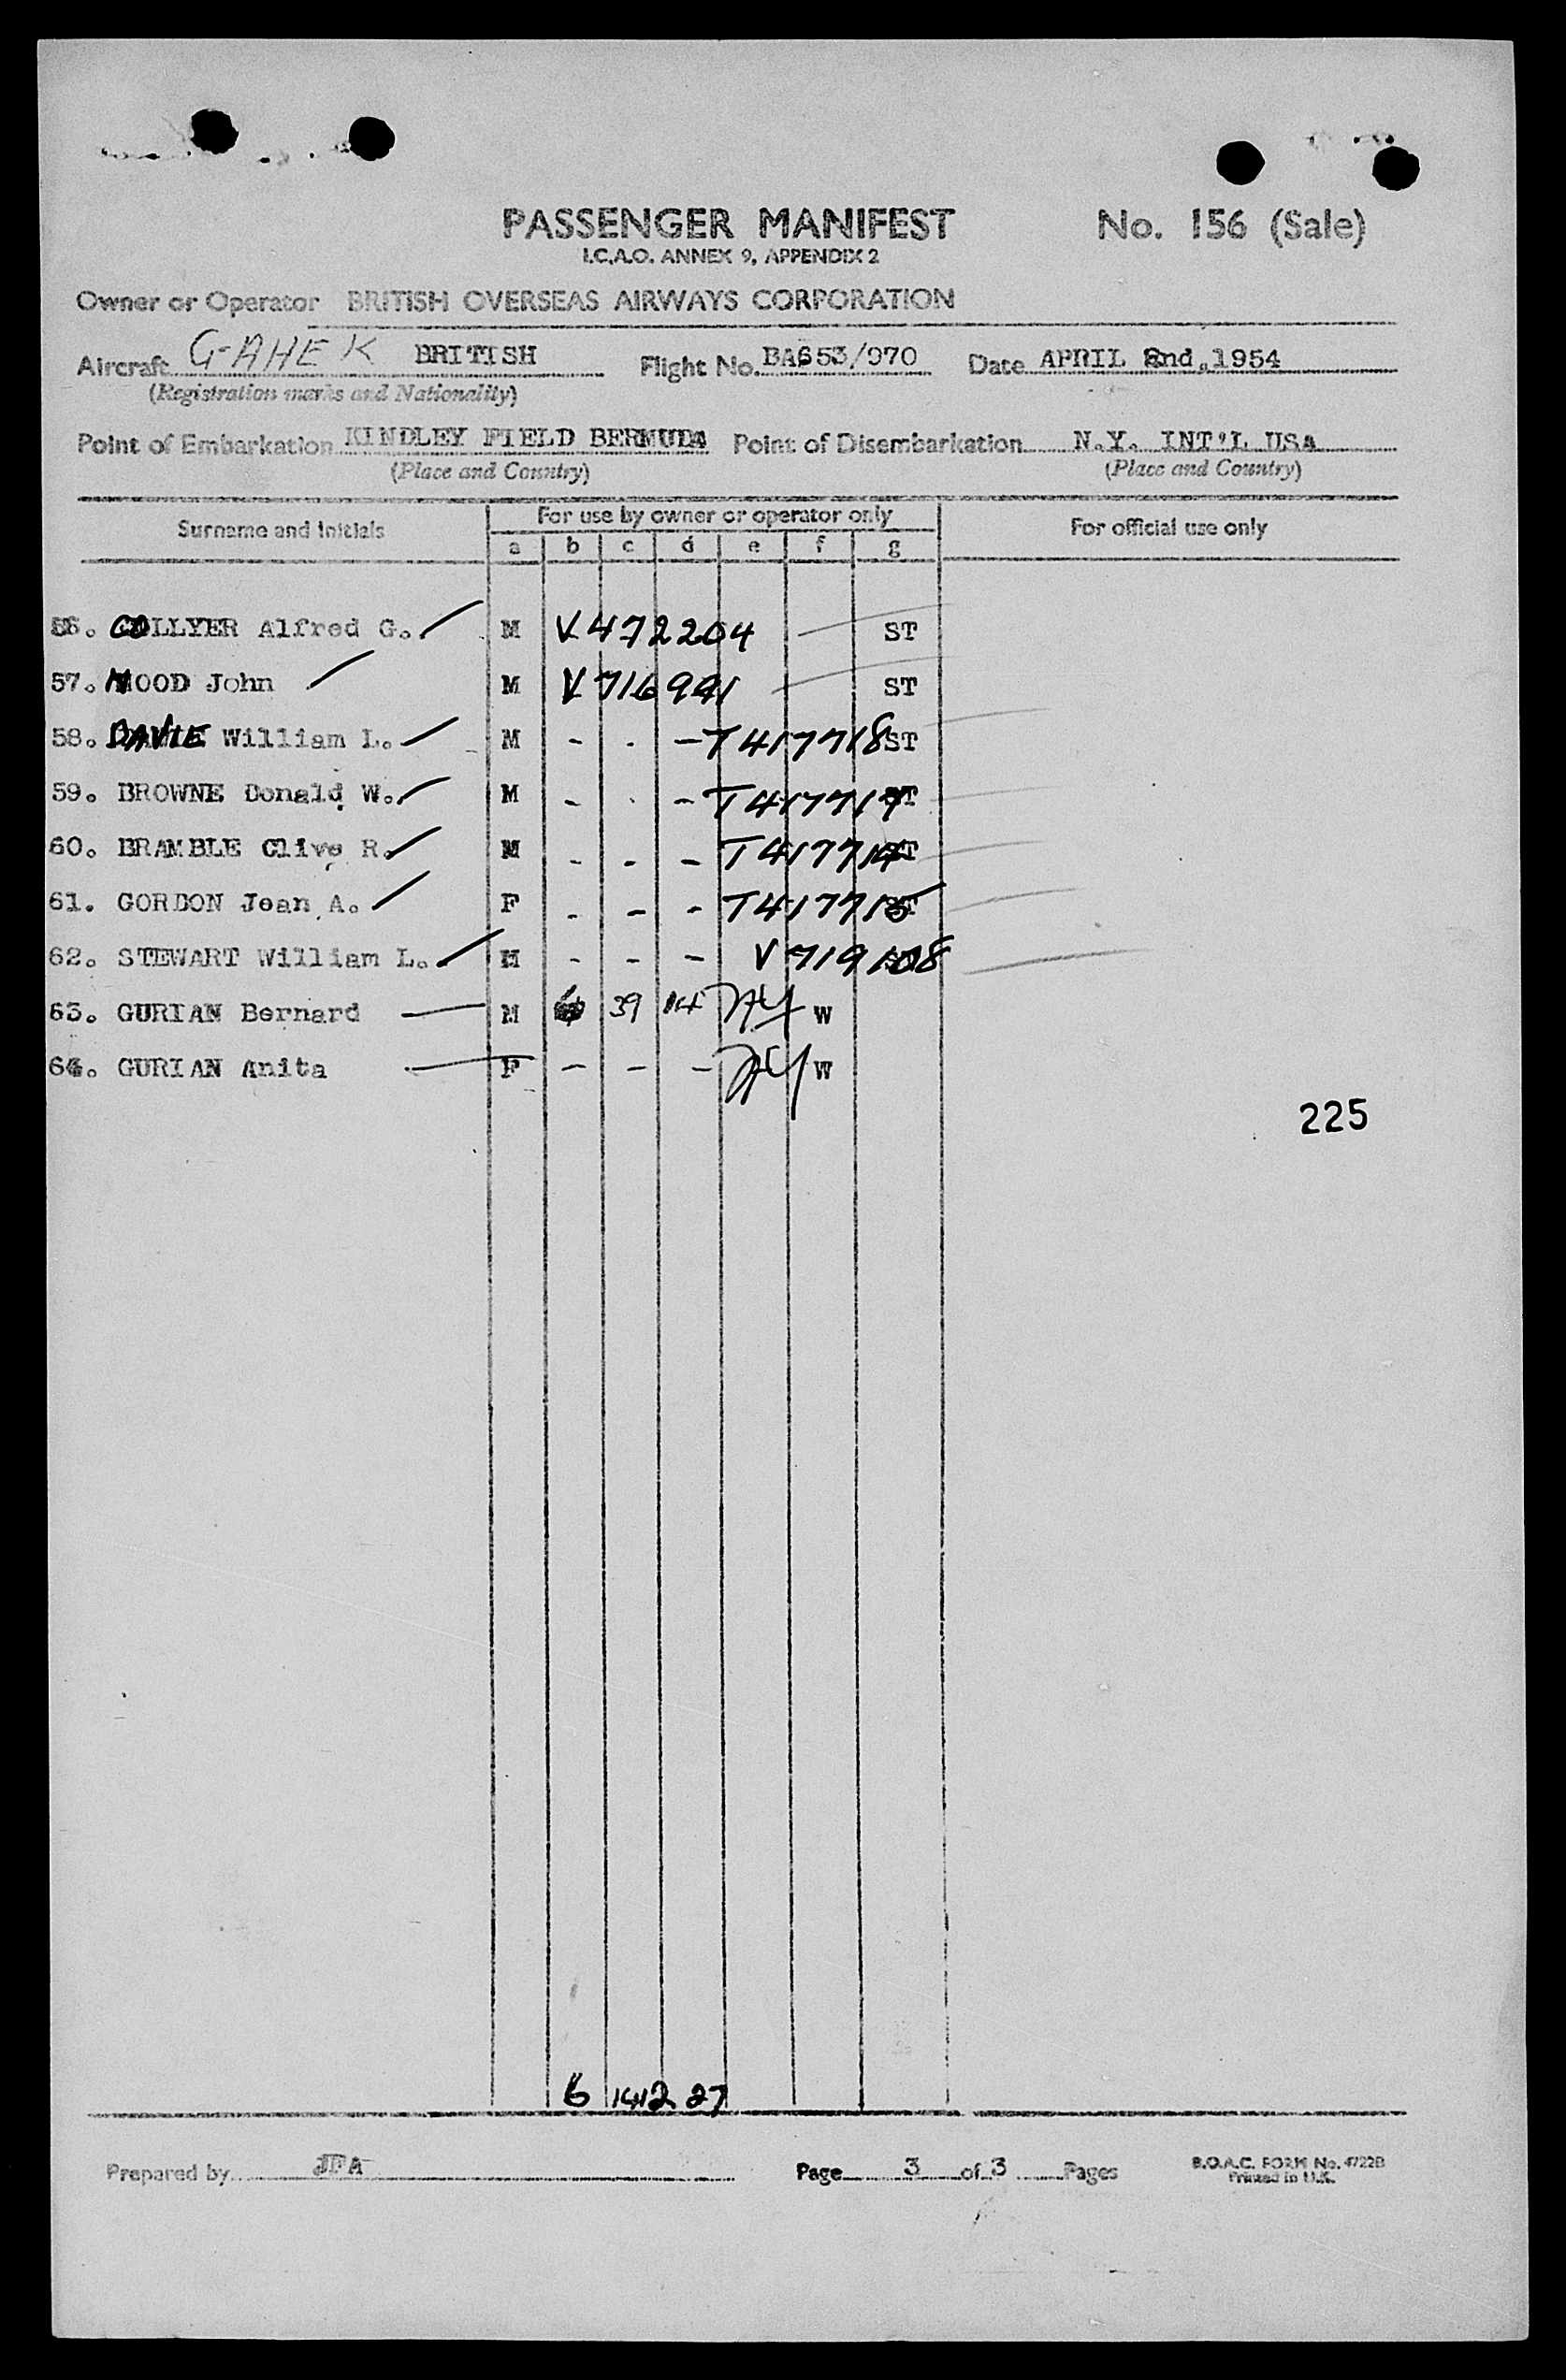 PASSENGER MANIFEST No. 156 (Sale)
I.C.A.O. ANNEX 9, APPENDIX 2
Owner or Operator BRITISH OVERSEAS AIRWAYS CORPORATION
Aircraft G-AHEK BRITISH Flight No. BA653/070 Date APRIL 2nd,1954
(Registration marks and Nationality)
Point of Embarkation KINDLEY FIELD BERMUDA Point of Disembarkation N.Y. INT'L USA
(Place and Country) (Place and Country)
Surname and Initials For use by owner or operator only For official use only
a b c d e f g
56. COLLYER Alfred G. M V472204 ST
57. MOOD John M V716991 ST
58. DAVIE William L. M - - - T417718 ST
59. BROWNE Donald W. M - - - T417717 ST
60. BRAMBLE Clive R. M - - - T417714 ST
61. GORDON Jean A. F - - - T417715 ST
62. STEWART William L. M - - - V719108
63. GURIAN Bernard M 39 14 W
64. GURIAN Anita F - - - W
225
6 1412 27
Prepared by JFA Page 3 of 3 Pages B.O.A.C. FORM No. 4722B
Printed in U.K.